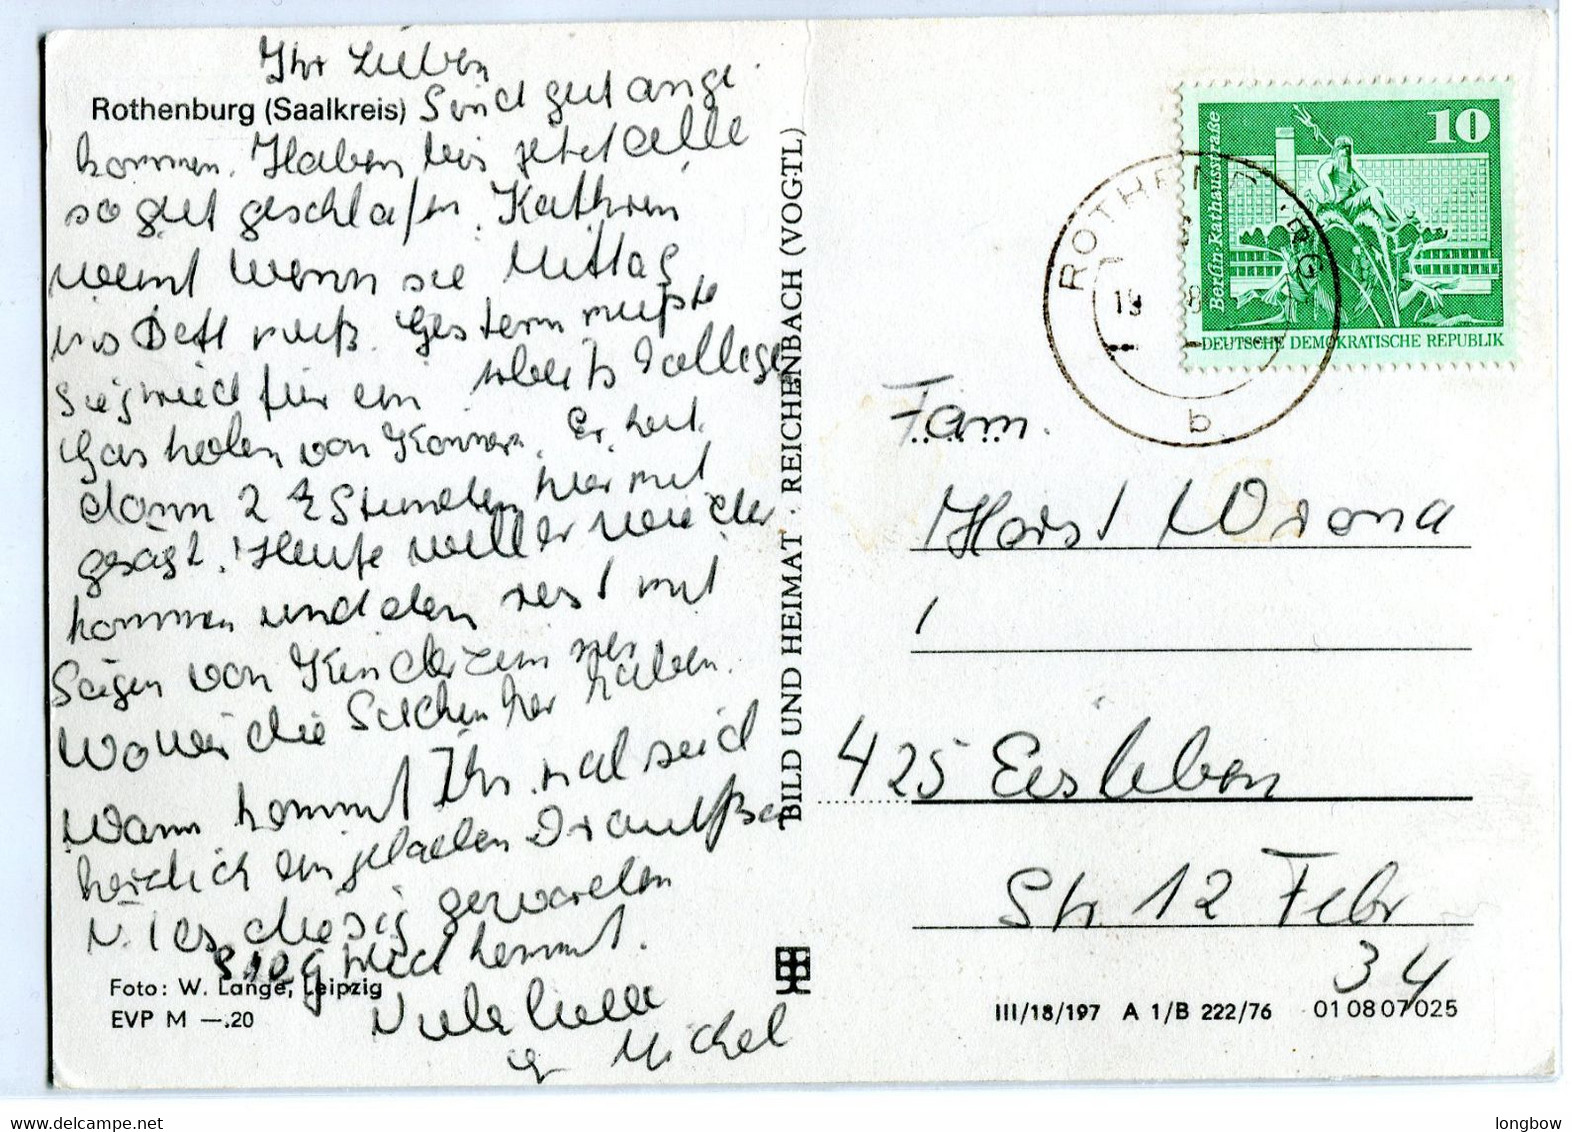 Ihr Lieben
Rothenburg (Saalkreis) Sind gut ange
kommen. Haben bis jetzt alle
so gut geschlafen. Kathrein
weint wenn sie Mittag
ins Bett muß. Gestern mußte
Siegried für ein Arbeitskollege
Gas holen von Könnern. Er hat
dann 2 ½ Stunden hier mit
gesägt. Heute will er wieder
kommen und den rest mit
Sägen von
die Sachen her haben.
Wann kommt Ihr mal seid
herzlich eingeladen Draußen
ist es diesig geworden
Siegried kommt.
Foto: W. Lange, Leipzig
EVP M —.20
Viele
Michel
BILD UND HEIMAT · REICHENBACH (VOGTL)
10
Berlin-Rathausstraße
DEUTSCHE DEMOKRATISCHE REPUBLIK
ROTHENBURG
19
8
b
Fam.
Horst Wrona
425 Eisleben
Str. 12 Febr
34
III/18/197 A 1/B 222/76 01 08 07 025
www.delcampe.net
longbow